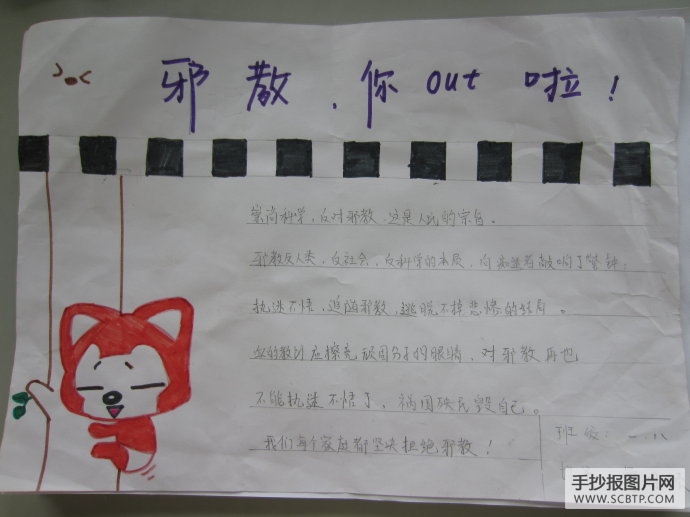 邪教、你out啦!
崇尚科学,反对邪教,这是人民的宗旨。
邪教反人类,反社会,反科学的本质,向痴迷者敲响了警钟,
执迷不悟,追随邪教,逃脱不掉悲惨的结局。
血的教训应擦亮顽固分子的眼睛,对邪教再也
不能执迷不悟了,祸国殃民毁自己。
我们每个家庭都坚决拒绝邪教!
班级:一.八
手抄报图片网
WWW.SCBTP.COM